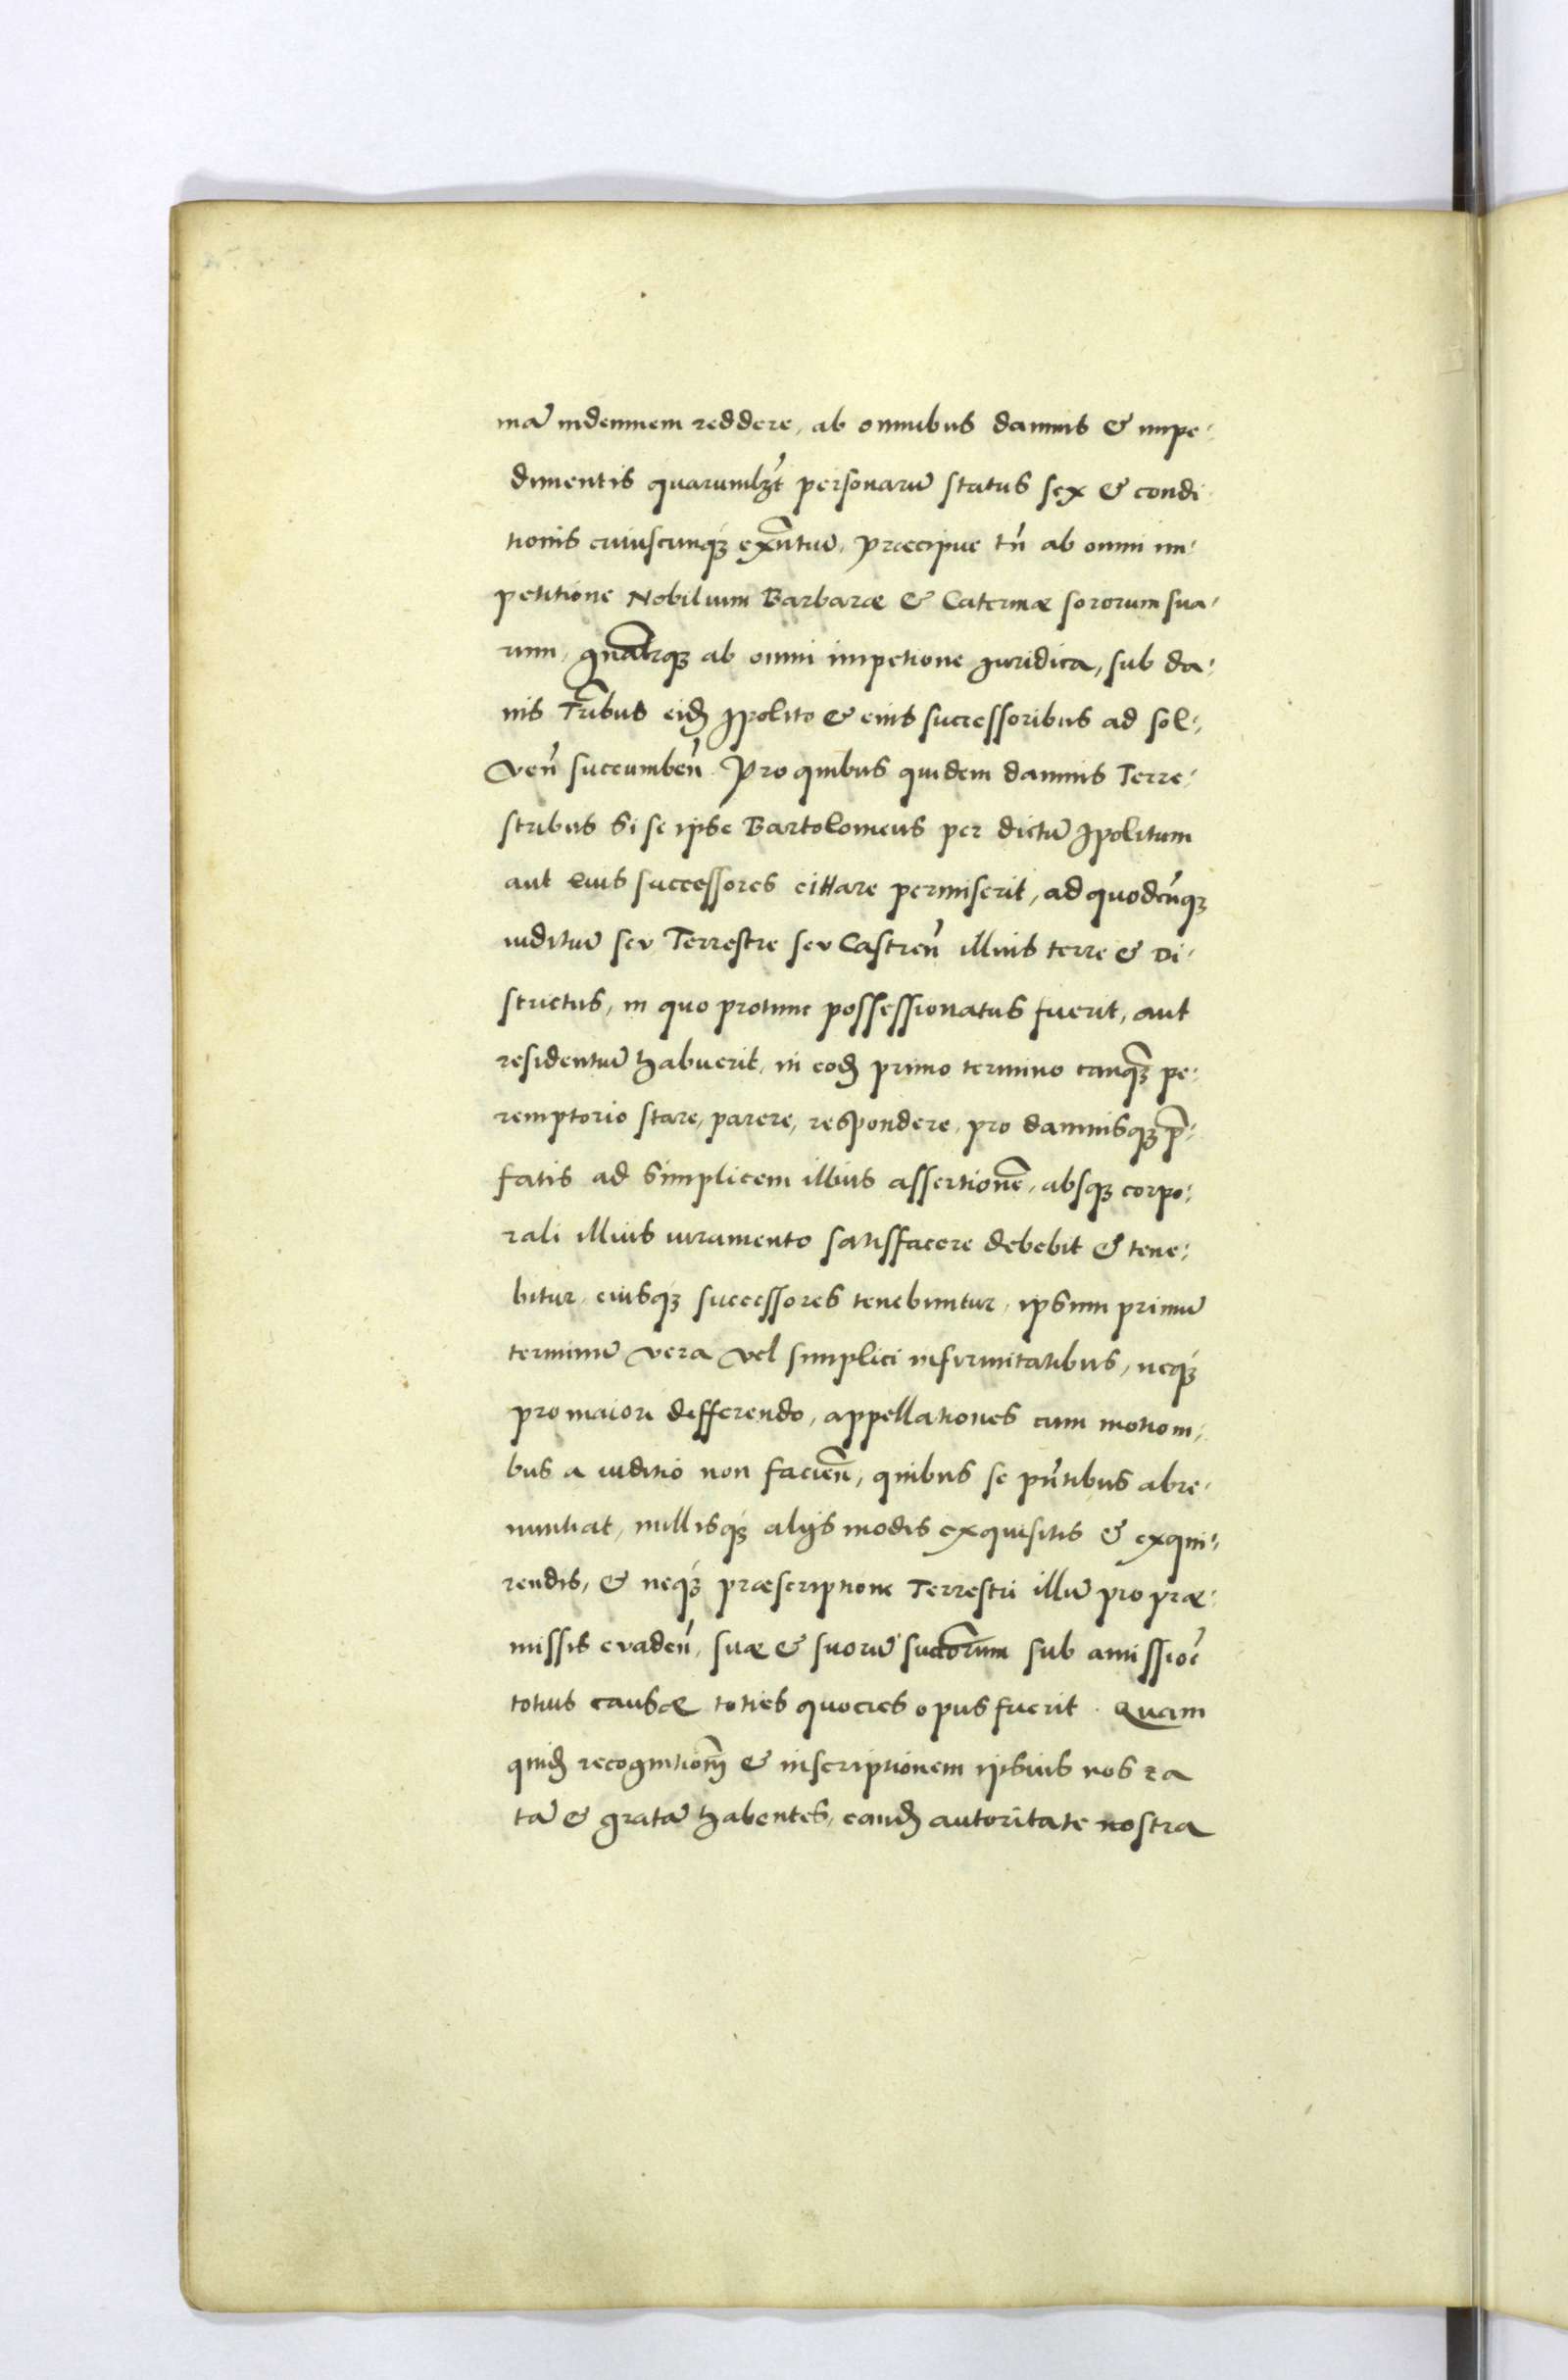 mā indemnem reddere, ab omnibus damnis & impe:
dimentis quarumlʒt personarū status sex & condi
tionis cuiuscunqꝫ exn̄tium, præcipue tn̄ ab omni im:
petitione Nobilium Barbaræ & Caterinæ sororum sua:
rum, gn̄alrqꝫ ab omni impetione Juridica, sub da:
nis Trībus eidꝫ Jpolito & eius successoribus ad sol:
ven̄ succumben̄. Pro quibus quidem damnis Terre:
stribus Si se ipse Bartolomeus per dictū Jpolitum
aut Eius successores cittare permiserit, ad quodcūqꝫ
iuditiū seu Terrestre seu Castren̄ illius terre & Di:
strictus, in quo protunc possessionatus fuerit, aut
residentiā habuerit, in eodꝫ primo termino tanqꝫ pe:
remptorio stare, parere, respondere, pro damnisqꝫ p̄:
fatis ad simplicem illius assertionē, absqꝫ corpo:
rali illius iuramento satisfacere debebit & tene:
bitur, eiusqꝫ successores tenebuntur, ipsum primū
terminū vera vel simplici infirmitatibus, neqꝫ
pro maiori differendo, appellationes cum motioni:
bus a iuditio non facien̄, quibus se pn̄tibus abre:
nuntiat, nullisqꝫ alijs modis exquisitis & exqui:
rendis, & neqꝫ præscriptione Terrestri illū pro præ:
missis evaden̄, suæ & suorū succorum sub amissioē
totius causæ toties quocies opus fuerit. Quam
quidꝫ recognitionꝫ & inscriptionem ipsius nos ra
tā & gratā habentes, eandꝫ autoritate nostra